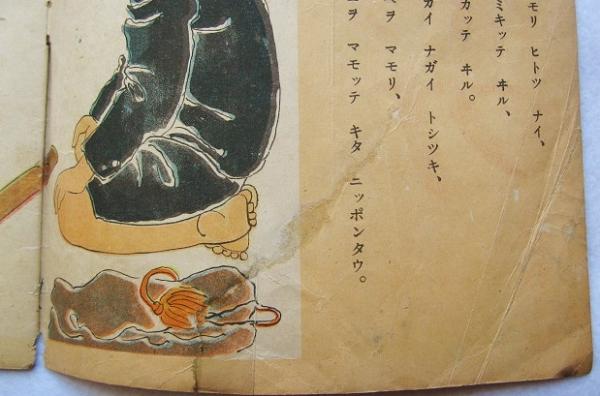 モリ ヒトツ ナイ、
ミキッテ ヰル、
カッテ ヰル。
ガイ ナガイ トシツキ、
ヲ マモリ、
ヲ マモッテ キタ ニッポンタウ。